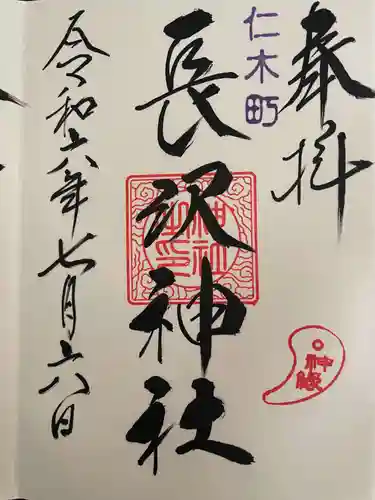 奉拝
仁木町
長沢神社
神社
神縁
令和六年七月六日